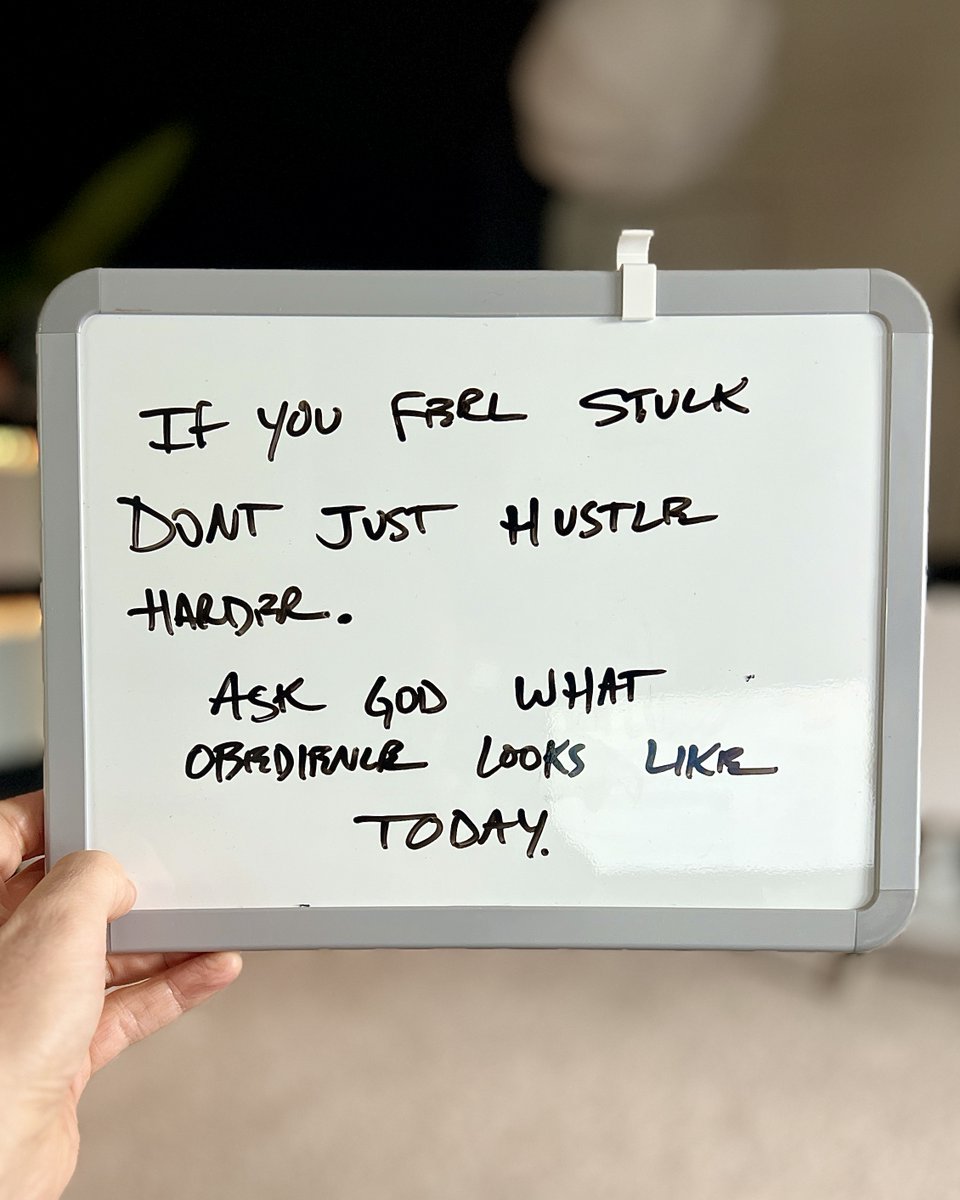 IF YOU FEEL STUCK
DONT JUST HUSTLE
HARDER.
ASK GOD WHAT
OBEDIENCE LOOKS LIKE
TODAY.